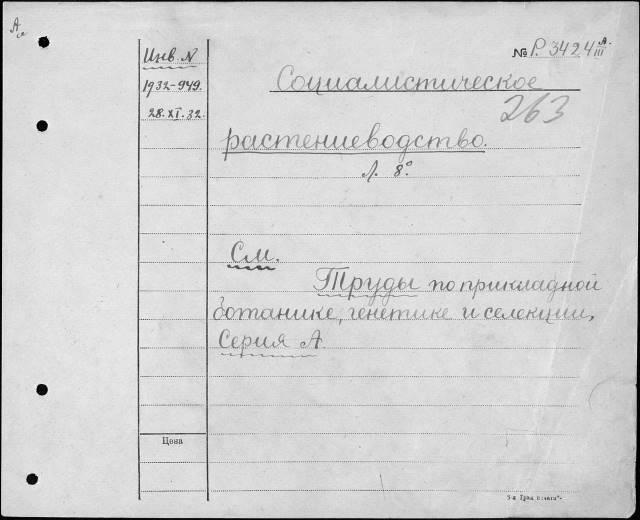 № Р. 3424 А. III
Инв №
1932-949.
28.XI.32.
Социалистическое
263
растениеводство.
Л. 8°
См.
Труды по прикладной
ботанике, генетике и селекции,
Серия А.
Цена